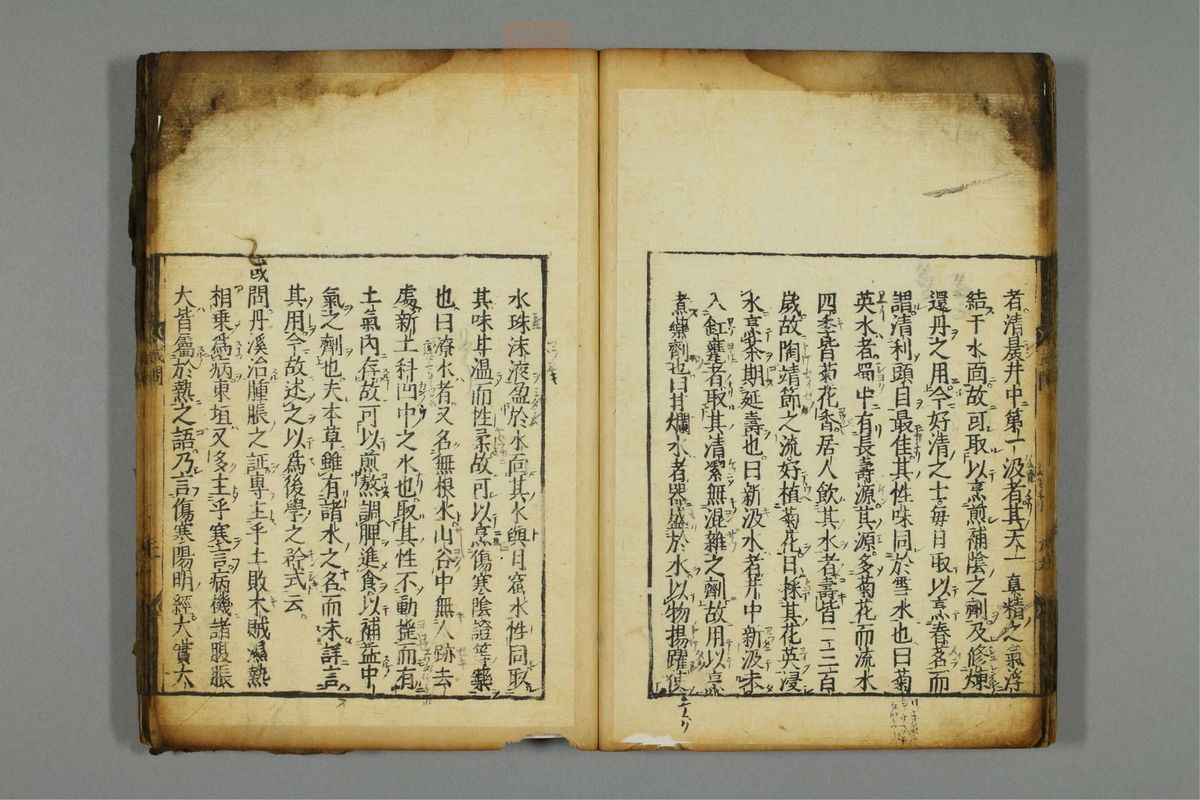 者清晨井中第一汲者其天一真精之氣浮
結于水面故可取以烹煎補陰之劑及修煉
還丹之用今好清之士每日取以烹春茗而
謂清利頭目最佳其性味同於雪水也曰菊
英水者蜀中有長壽源其源多菊花而流水
四季皆菊花香居人飲其水者壽皆二三百
歲故陶靖節之流好植菊花日採其花英浸
水烹茶期延壽也曰新汲水者井中新汲未
入缸甕者取其清潔無混雜之劑故用以烹
煮藥劑也曰甘爛水者器盛於水以物揚躍使
水珠沫液盈於水面其水與月窟水性同取
其味甘温而性柔故可以烹傷寒陰證等藥
也曰潦水者又名無根水山谷中無人跡去
處新土科凹中之水也取其性不動搖而有
土氣內存故可以煎熬調脾進食以補益中
氣之劑也夫本草雖有諸水之名而未詳言
其用今故述之以爲後學之矜式云
或問丹溪治腫脹之証專主乎土敗木賊濕熱
相乗爲病東垣又多主乎寒言病機諸腹脹
大皆屬於熱之語乃言傷寒陽明經大實大